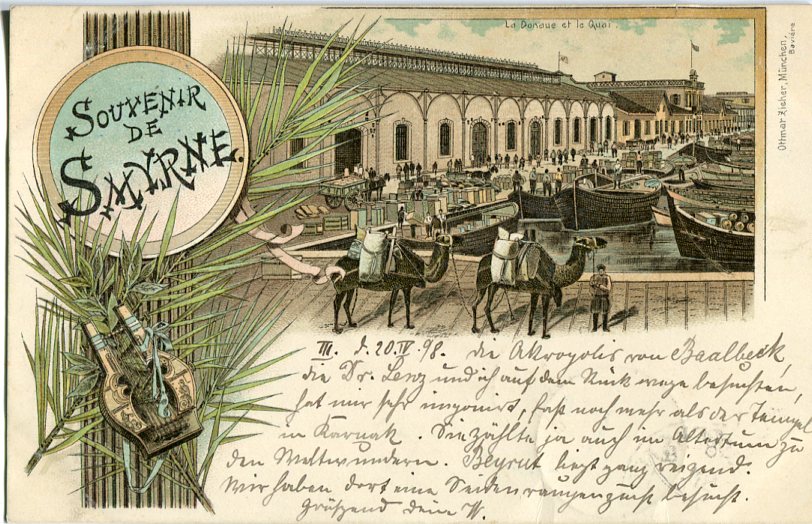 La Donaue et le Quai.
Ottmar Zieher, München,
Bavière
SOUVENIR
DE
SMYRNE.
III. d. 20.IV.98. die Akropolis von Baalbeck,
die Dr. Lenz und ich auf dem Rück wege besuchten,
hat mir sehr imponirt, fast noch mehr als der Tempel
in Karnak. Sie zählte ja auch im Altertum zu
den Weltwundern. Beyrut liegt ganz reizend.
Wir haben dort eine Seidenraupenzucht besucht.
Grüßend dein W.